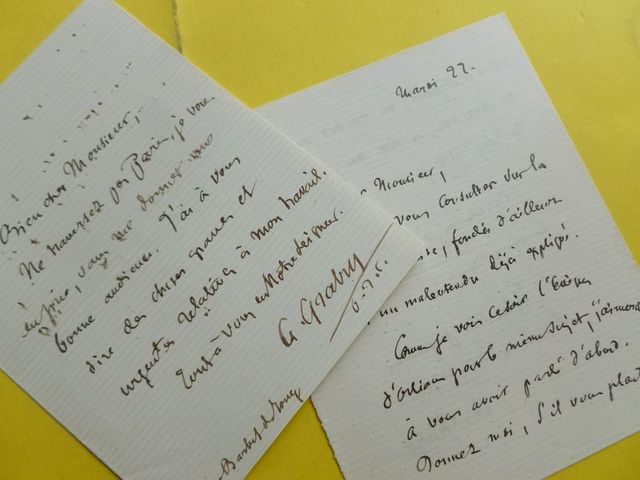 Bien cher Monsieur,
Ne traversez pas Paris, je vous
en prie, sans me donner une
bonne audience. J'ai à vous
dire des choses graves et
urgentes relatives à mon travail.
Tout à vous en Notre Seigneur.
Mardi 22.
Monsieur,
vous consulter sur la
fondés d'ailleurs
un malentendu déjà expliqué.
Comme je vois ce soir l'Évêque
d'Orléans pour le manuscrit, j'aimerais
à vous avoir parlé d'abord.
Donnez moi, s'il vous plaît